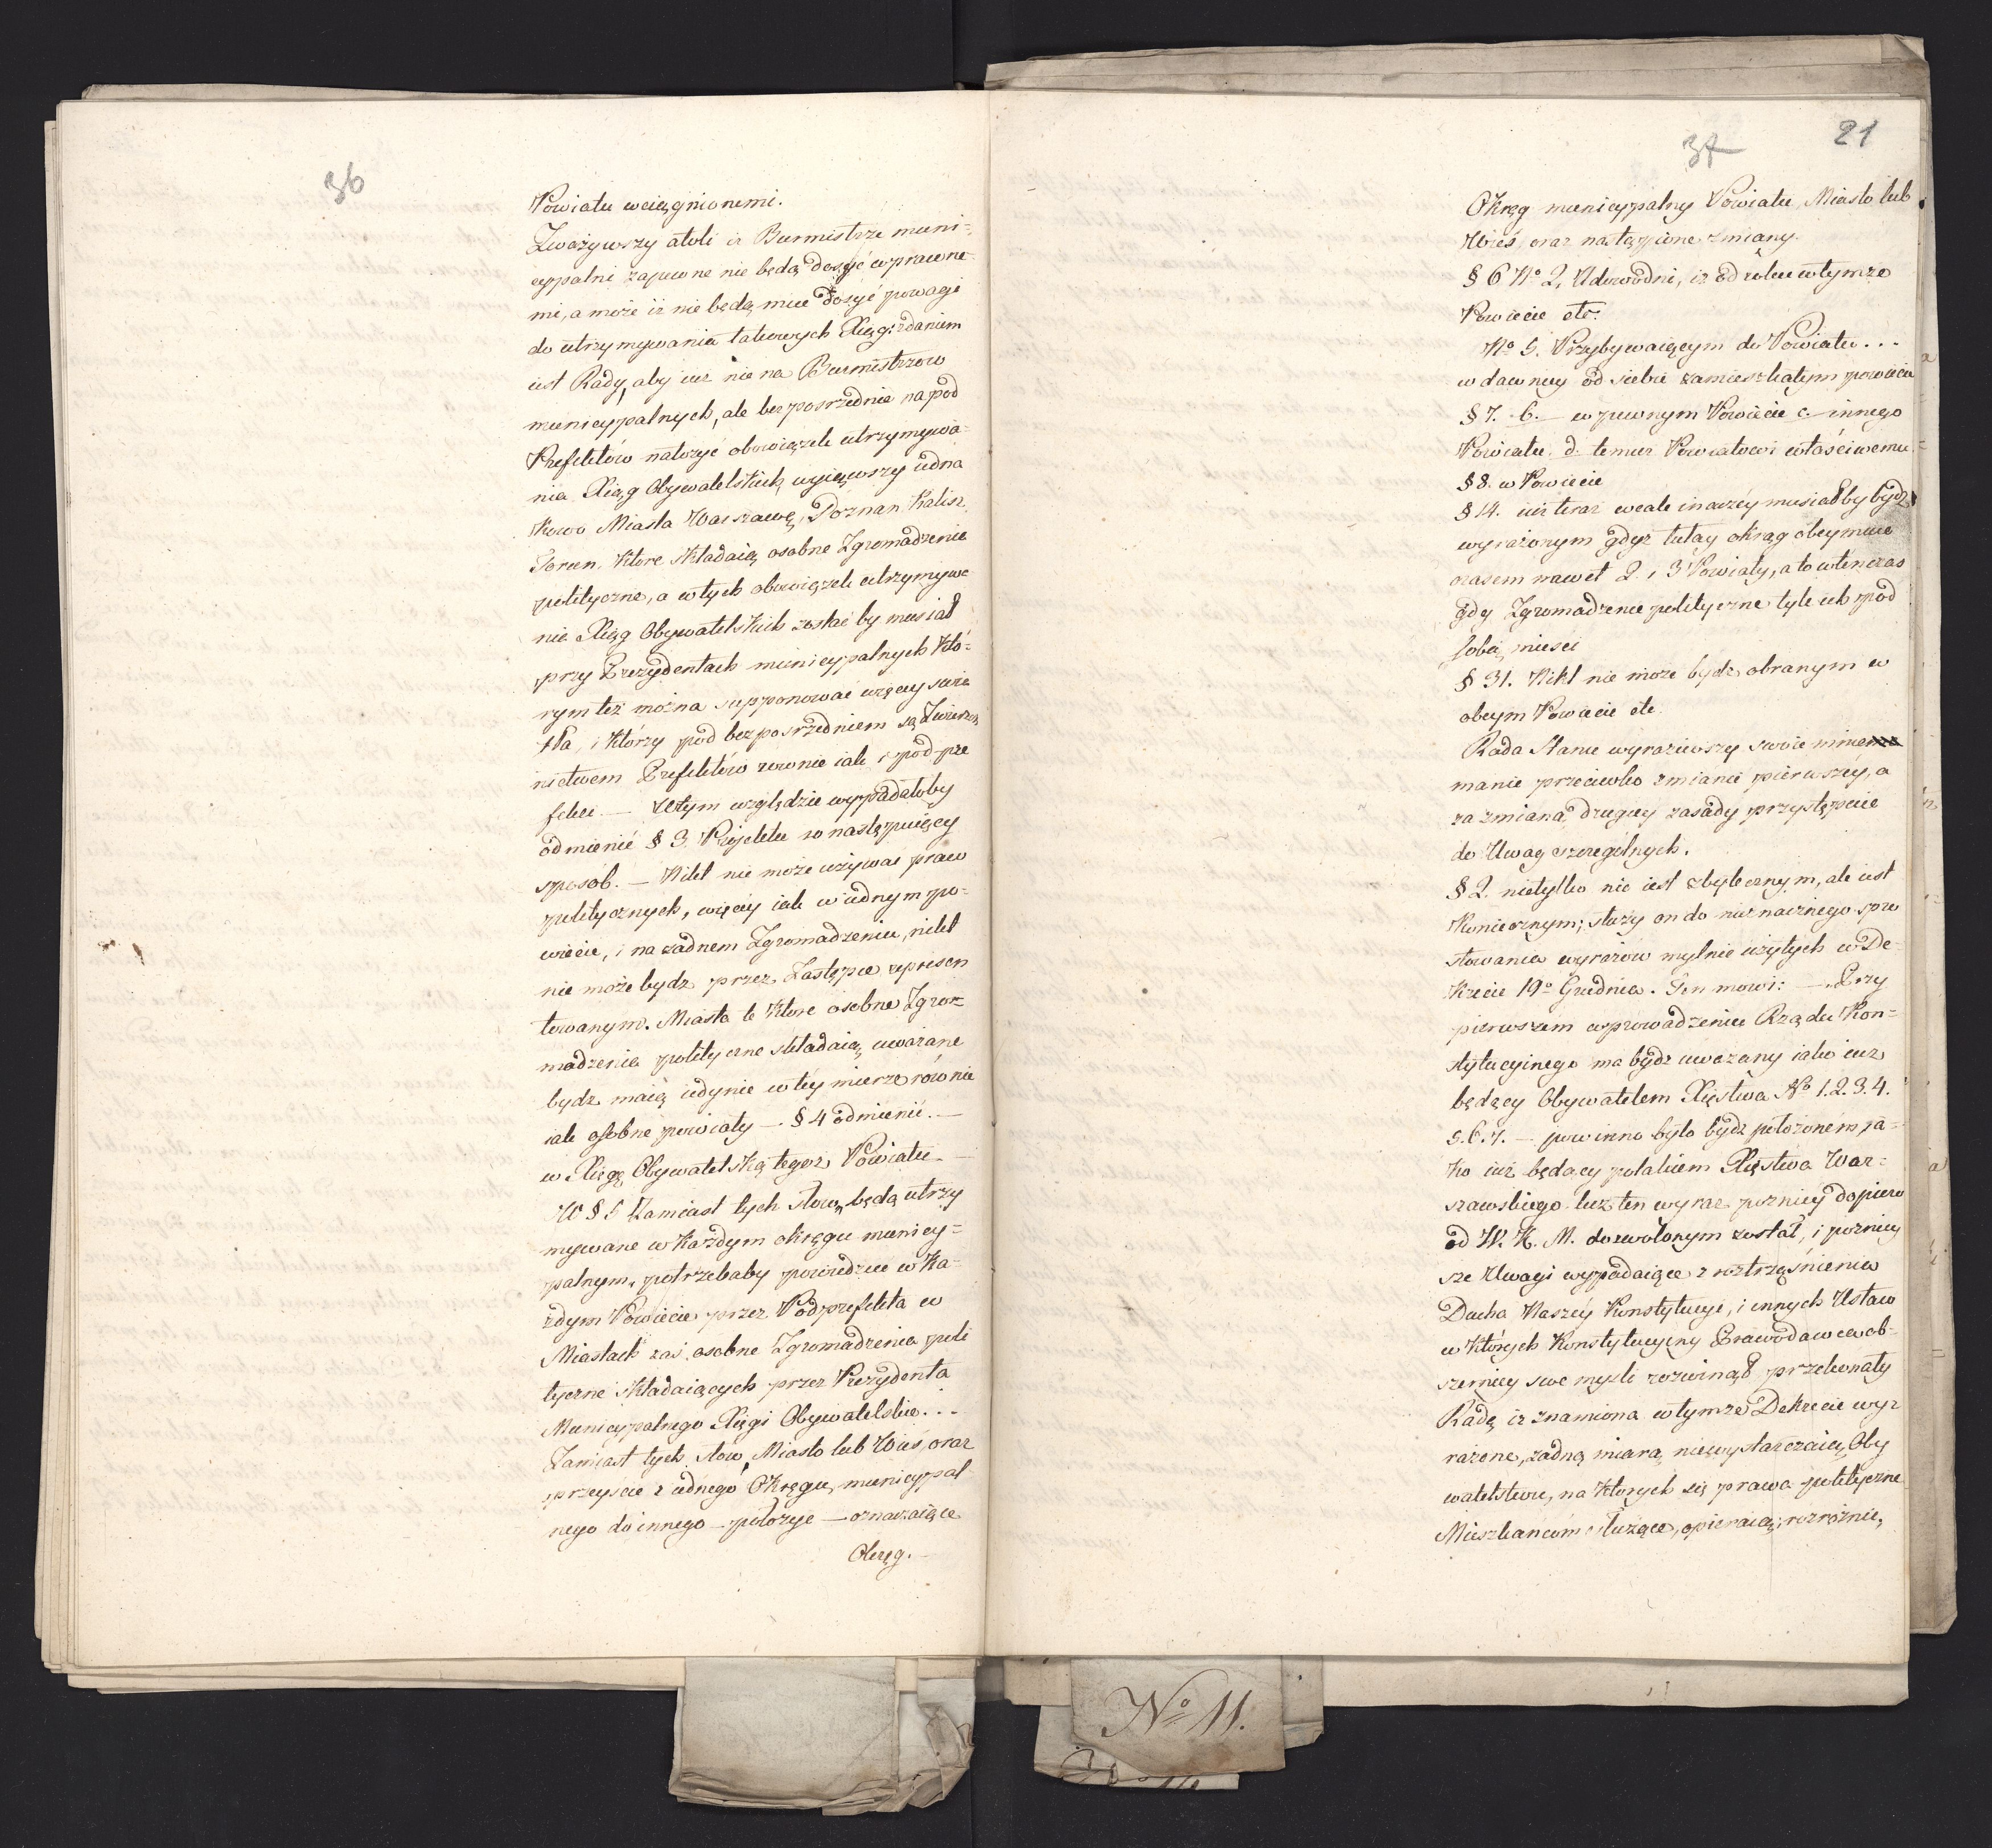 36
Powiatu wciągnionemi.
Zważywszy atoli iż Burmistrze muni=
cypalni zapewne nie będą dosyć wprawne
mi, a może iż nie będą mieć dosyć powagi
do utrzymywania takowych Xiąg: zdaniem
iest Rady, aby iuż nie na Burmistrzow
municypalnych, ale bezpośrzednie na pod
Prefektów nałożyć obowiązek utrzymywa-
nia Xiąg Obywatelskich, wyiąwszy iedna
kowo Miasta Warszawę, Poznan Kalisz,
Torun. Ktore składaią osobne Zgromadzenia
polityczne, a wtych obowiązek utrzymywa
nia Xiąg Obywatelskich zostać by musiał
przy Prezydentach municypalnych któ=
rym też można supponować więcey świa
tła, i którzy pod bezpośrzedniem są Zwierzch
nictwem Prefektów rownie iak i pod-pre
fekci — Wtym względzie wypadałoby
odmienić § 3. Proiektu w następuiący
sposob. — Nikt nie może używać praw
politycznych, więcey iak w iednym po-
wiecie, i na żadnem Zgromadzeniu, nikt
nie może bydz przez Zastępce reprezen
towanym. Miasta te ktore osobne Zgro=
madzenia polityczne składaią uważane
bydz maią iedynie wtey mierze rownie
iak osobne powiaty — § 4 odmienić. —
w Xięgę Obywatelską tegoż Powiatu. —
W § 5 Zamiast tych słow, będą utrzy
mywane w każdym okręgu municy=
palnym, potrzebaby powiedziec w Ka-
żdym Powiecie przez Podprefekta w
Miastach zaś osobne Zgromadzenia poli
tyczne składaiących przez Prezydenta
Municypalnego Xięgi Obywatelskie...
Zamiast tych słow, Miasto lub Wieś, oraz
przeyscie z iednego Okręgu, municypal
nego do innego — położyć — oznaczaiące
Okręg. —
37
21
Okręg municypalny Powiatu, Miasto lub
Wieś, oraz nastąpione zmiany.
§ 6 No 2, Udowodni, iż od roku wtymże
Powiecie etc.
No 5. Przybywaiącym do Powiatu...
w dawney od siebie zamieszkałym powiecie
§ 7. b. — w pewnym Powiecie c. — innego
Powiatu d. temuż Powiatowi właściwemu.
§ 8. w Powiecie
§ 14. iuż teraz wcale inaczey musiałby bydz
wyrażonym gdyż tutay okrąg obeymuie
czasem nawet 2. i 3 Powiaty, a to wtenczas
gdy Zgromadzenie polityczne tyle ich pod
sobą miesci
§ 31. Nikt nie może bydz obranym w
obcym Powiecie etc.
Rada Stanu wyraziwszy swoie mnie
manie przeciwko zmianie pierwszéy, a
za zmianą drugiey zasady przystępuie
do Uwag szczegolnych.
§ 2. nietylko nie iest zbytecznym, ale iest
koniecznym; służy on do nieznacznego spro
stowania wyrazow mylnie użytych w De-
krecie 19o Grudnia. Ten mowi: — „Przy
pierwszem wprowadzeniu Rządu Kon=
stytucyinego ma bydz uważany iako iuż
będący Obywatelem Xięstwa No 1.2.3.4.
5.6.7. — powinno było bydz położoném, ia-
ko iuż będący polakiem Xięstwa War=
szawskiego lecz ten wyraz pozniey dopiero
od W. K. M. dozwolonym został, i pozniey
sze Uwagi wypadaiące z roztrząśnienia
Ducha Naszéy Konstytucyi, i innych Ustaw
w których Konstytucyiny Prawodawca ob-
szerniey swe mysli rozwinął przekonały
Radę iż znamiona wtymże Dekrecie wy=
rażone, żadną miarą niewystarczaią Oby
watelstwu, na których się prawa polityczne
Mieszkańcóm służące, opieraią; rozróżnie,
No 11.